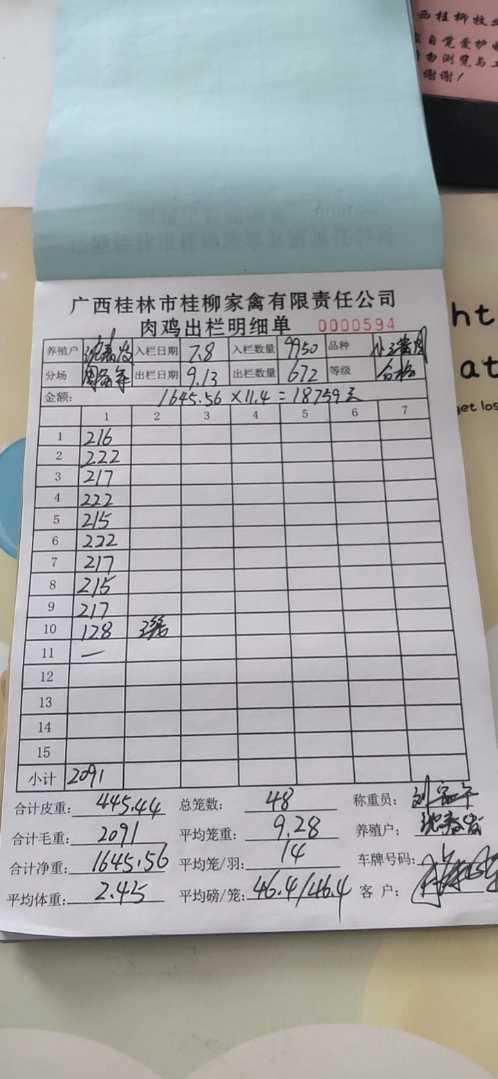 西桂柳牧
自觉爱护
勿浏览与工
谢谢！
ht
at
get los
广西桂林市桂柳家禽有限责任公司
肉鸡出栏明细单 0000594
养殖户 入栏日期 7.8 入栏数量 9950 品种
分场 出栏日期 9.13 出栏数量 672 等级 合格
金额: 1645.56×11.4=18759元
1 2 3 4 5 6 7
1 216
2 222
3 217
4 222
5 215
6 222
7 217
8 215
9 217
10 128 3笼
11 —
12
13
14
15
小计 2091
合计皮重: 445.44 总笼数: 48 称重员:
合计毛重: 2091 平均笼重: 9.28 养殖户:
合计净重: 1645.56 平均笼/羽: 14 车牌号码:
平均体重: 2.45 平均磅/笼: 46.4/46.4 客 户: